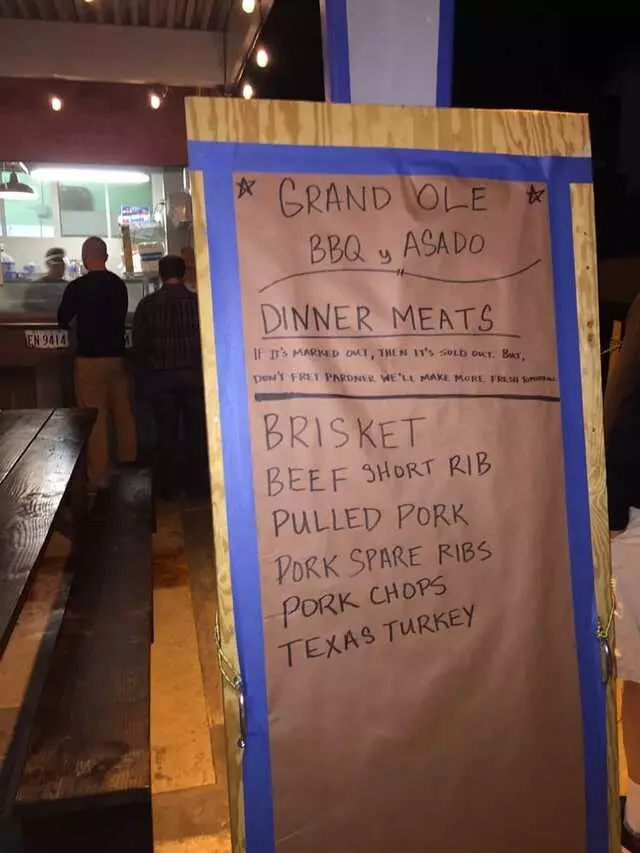 GRAND OLE
BBQ y ASADO
DINNER MEATS
IF IT'S MARKED OUT, THEN IT'S SOLD OUT. BUT,
DON'T FRET PARDNER WE'LL MAKE MORE FRESH TOMORROW
BRISKET
BEEF SHORT RIB
PULLED PORK
PORK SPARE RIBS
PORK CHOPS
TEXAS TURKEY
EN 9414